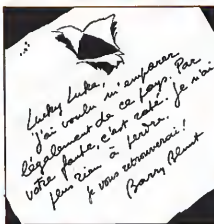 Lucky Luke,
j'ai voulu m'emparer
légalement de ce pays. Par
votre faute, c'est raté. Je n'ai
plus rien à perdre.
Je vous retrouverai!
Barry Blunt